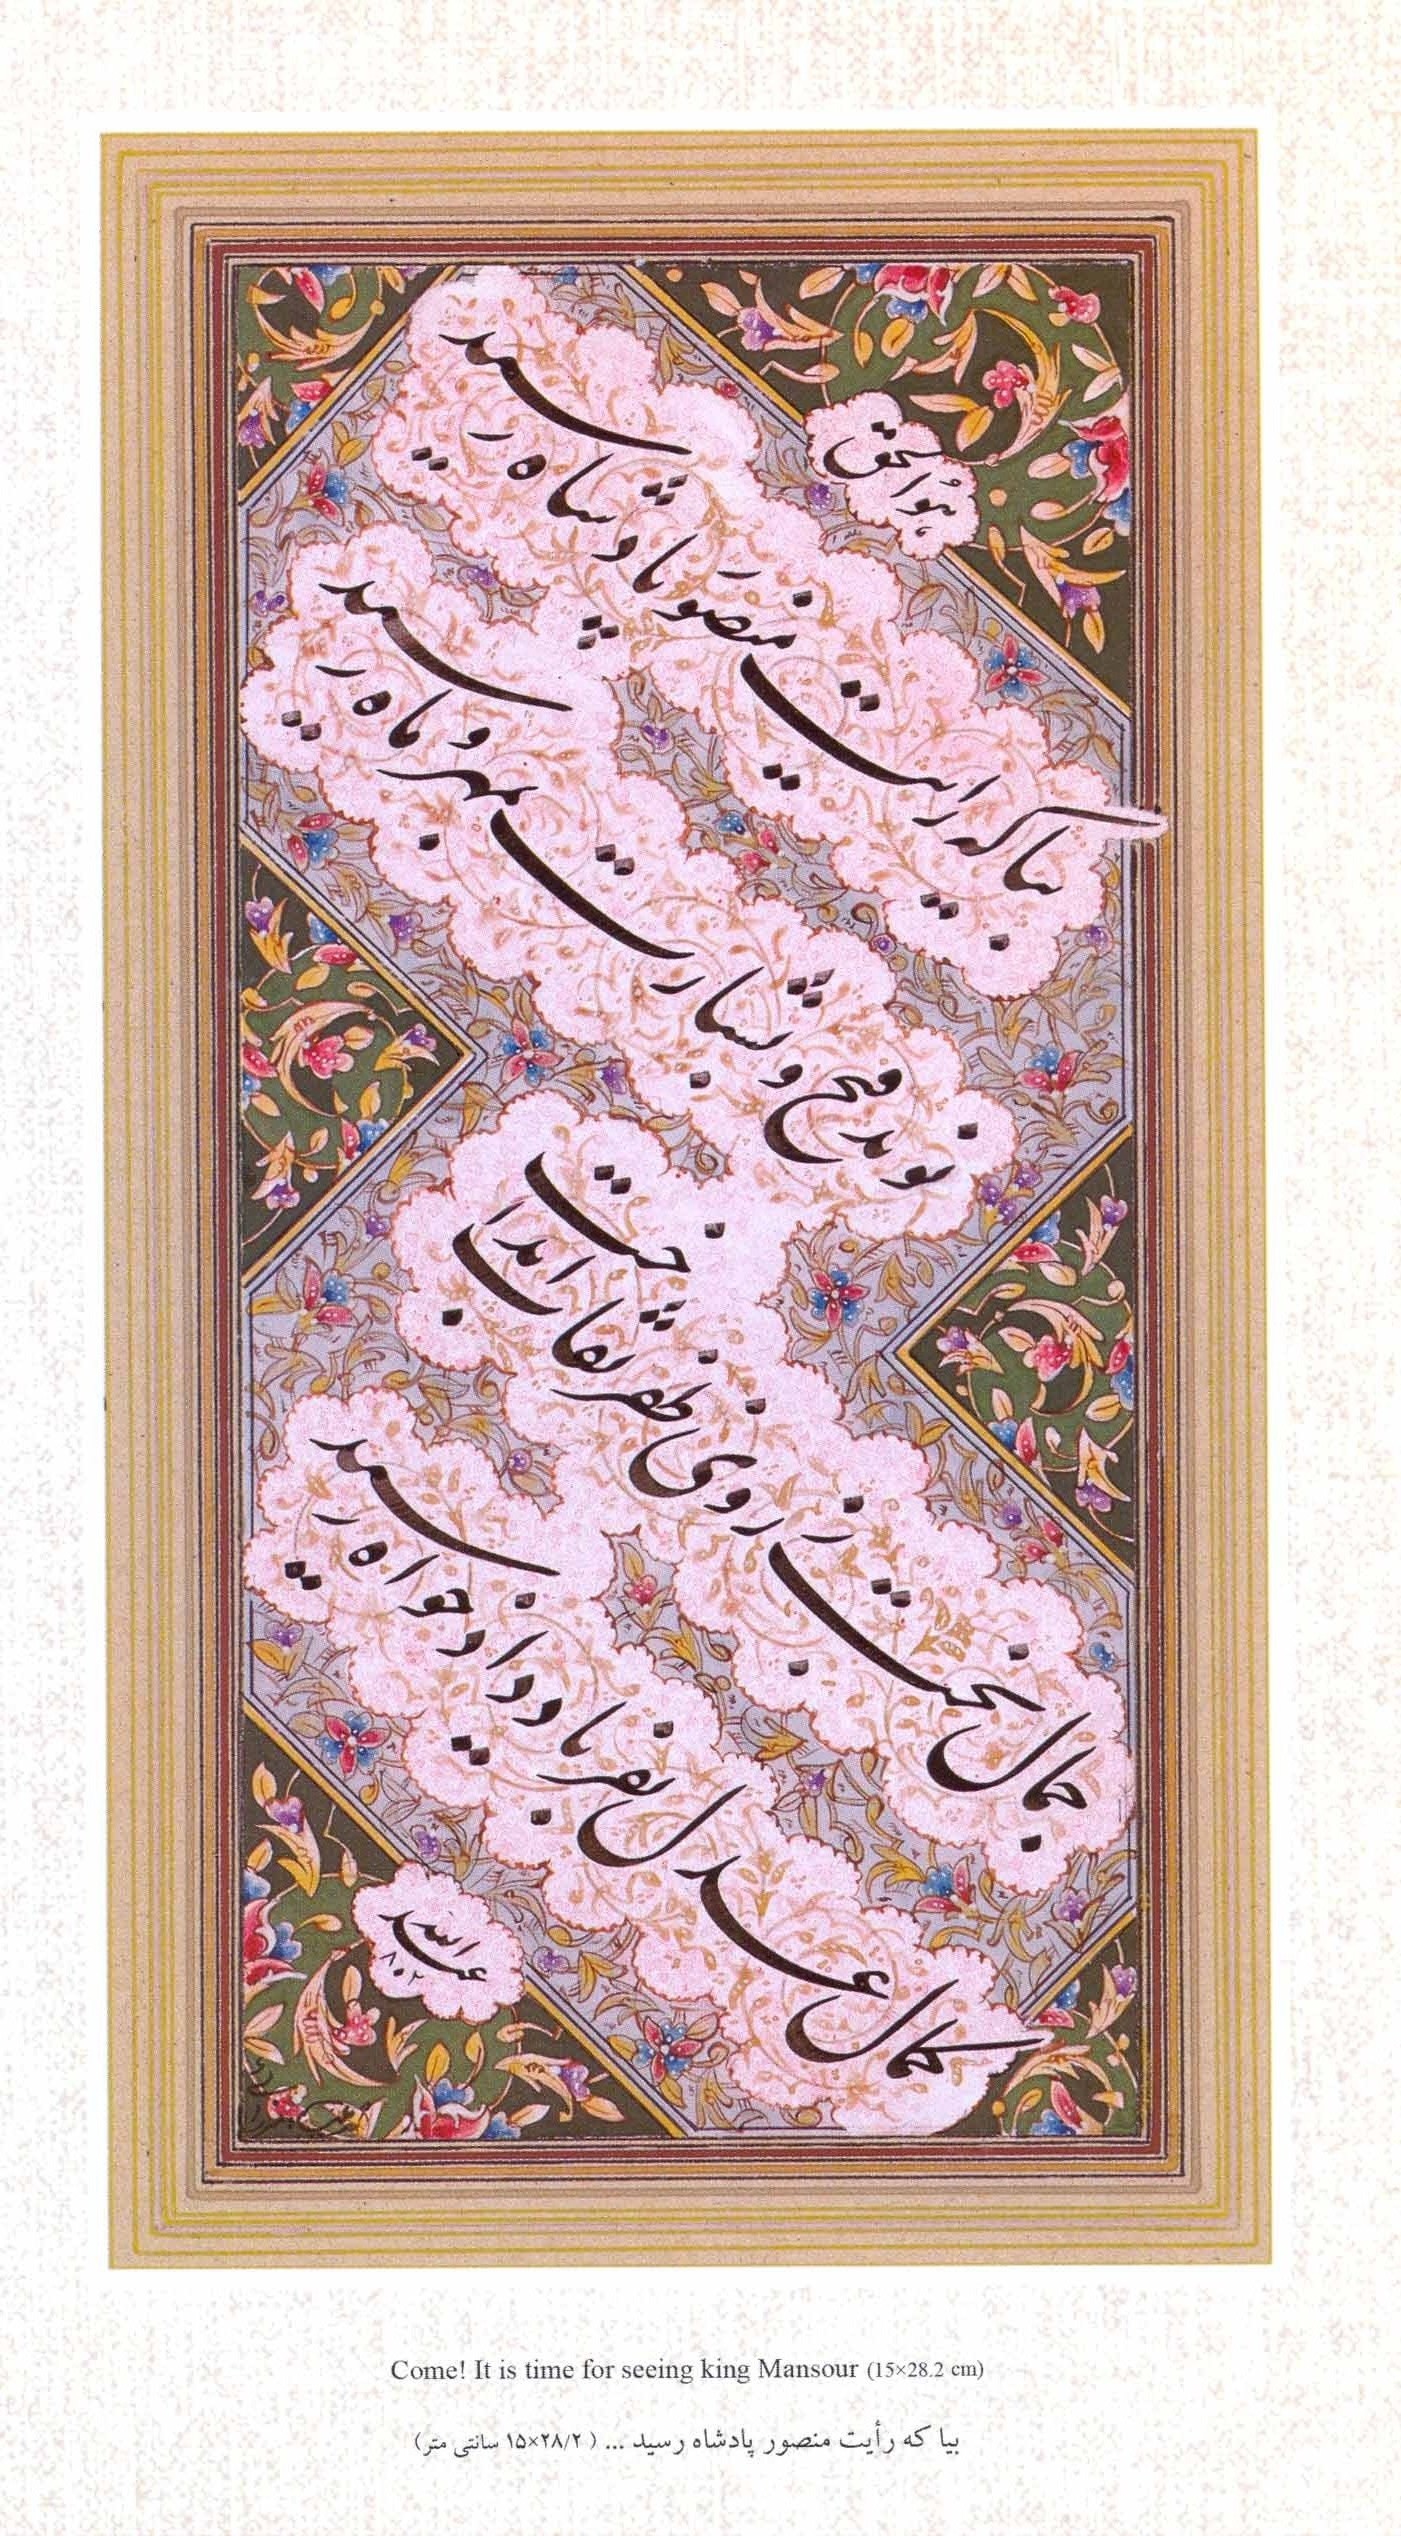 هو الحق
بیا که رایت منصور پادشاه رسید
نوید فتح و بشارت بمهر و ماه رسید
جمال بخت ز روی ظفر نقاب انداخت
کمال عدل بفریاد دادخواه رسید
Come! It is time for seeing king Mansour (15×28.2 cm)
بیا که رأیت منصور پادشاه رسید ... ( ۱۵×۲۸/۲ سانتی متر)